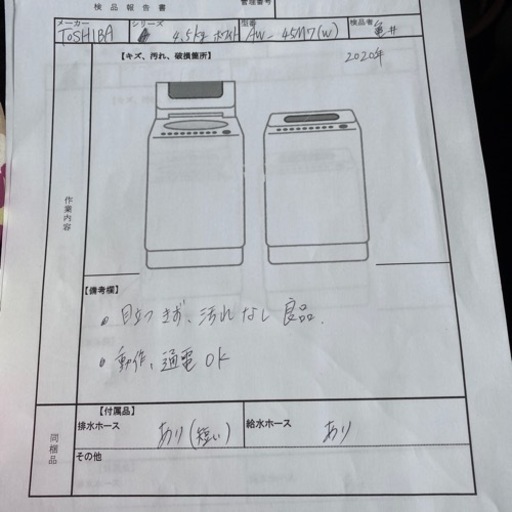 検品報告書
管理番号
メーカー シリーズ 型番 検品者
TOSHIBA 4.5kg ホワイト AW-45M7(W) 亀井
【キズ、汚れ、破損箇所】 2020年
作業内容
【備考欄】
• 目立つきず、汚れなし 良品.
• 動作、通電 OK
同梱品
【付属品】
排水ホース あり(短い) 給水ホース あり
その他